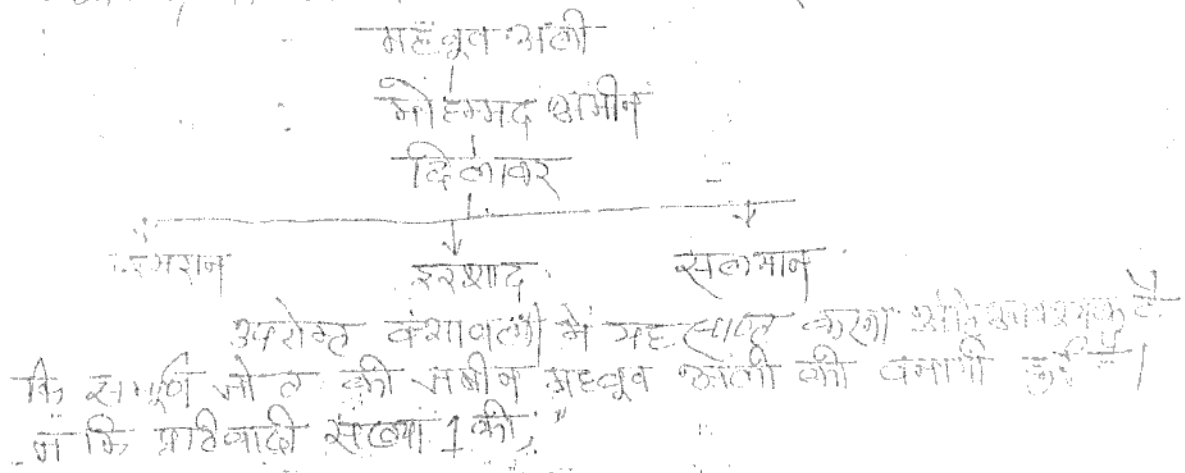 महबूब अली
मोहम्मद अमीन
दिलावर
इमरान इरशाद सलमान
उपरोक्त वंशावली में यह स्पष्ट करना अति आवश्यक है
कि सम्पूर्ण जोत की जमीन महबूब अली की बनायी हुई है।
न कि प्रतिवादी संख्या 1 की,"